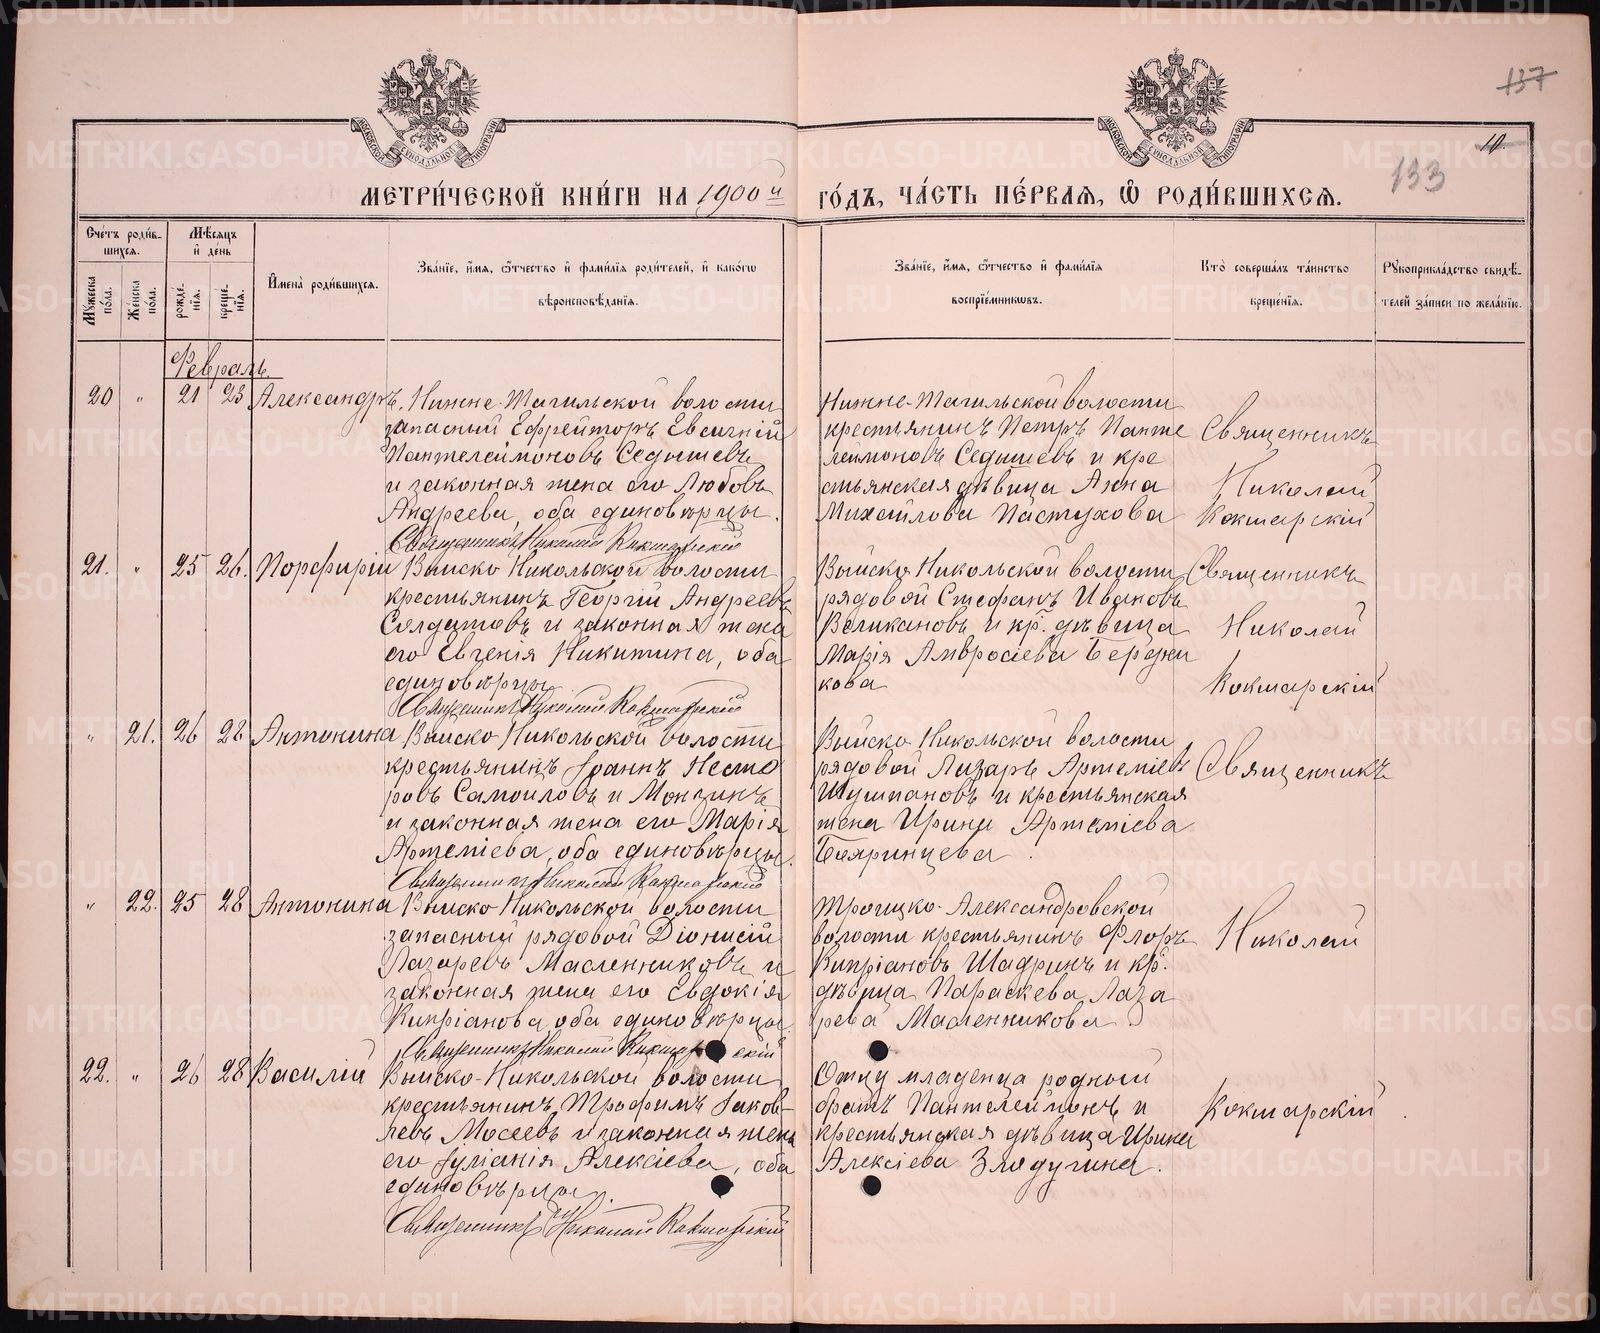 137
10.
133
МОСКОВСКОЙ СѴНОДАЛЬНОЙ ТИПОГРАФІИ
МОСКОВСКОЙ СѴНОДАЛЬНОЙ ТИПОГРАФІИ
МЕТРИ́ЧЕСКОЙ КНИ́ГИ НА 1900й ГО́ДЪ, ЧА́СТЬ ПЕ́РВАЯ, Ѡ РОДИ́ВШИХСЯ.
Сче́тъ роди́в-
шихся.
Мꙋ́жеска
по́ла.
Же́нска
по́ла.
Мѣ́сяцъ
и҆ де́нь
рожде́-
нїя.
креще́-
нїя.
И҆мена̀ роди́вшихся.
Зва́нїе, и҆́мя, ѻ҆́тчество и҆ фами́лїя роди́телей, и҆ како́гѡ
вѣроисповѣ́данїя.
Зва́нїе, и҆́мя, ѻ҆́тчество и҆ фами́лїя
воспрїе́мниковъ.
Кто̀ соверша́лъ та́инство
креще́нїя.
Рꙋкоприкла́дство свидѣ́-
телей за́писи по жела́нїю.
Февраль.
20 " 21 23 Александръ. Нижне-Тагильской волости
запасный Ефрейторъ Евсигній
Пантелеимоновъ Седышевъ
и законная жена его Любовь
Андреева, оба единовѣрцы.
Священникъ Николай Кокшарскій
Нижне-Тагильской волости
крестьянинъ Петръ Панте
леимоновъ Седышевъ и кре
стьянская дѣвица Анна
Михайлова Пастухова
Священникъ
Николай
Кокшарскій
21. " 25 26. Порфирій Выйско-Никольской волости
крестьянинъ Георгій Андреевъ
Солдатовъ и законная жена
его Евгенія Никитина, оба
единовѣрцы
Священникъ Николай Кокшарскій
Выйско-Никольской волости
рядовой Стефанъ Ивановъ
Великановъ и кр. дѣвица
Марія Амвросіева Бердни
кова
Священникъ
Николай
Кокшарскій
" 21. 26 28 Антонина Выйско-Никольской волости
крестьянинъ Іоаннъ Несто
ровъ Самоиловъ и Монзинъ
и законная жена его Марія
Артеміева, оба единовѣрцы.
Священникъ Николай Кокшарскій
Выйско-Никольской волости
рядовой Лазарь Артеміевъ
Шушпановъ и крестьянская
жена Ирина Артеміева
Бояринцева.
Священникъ
" 22. 25 28 Антонина Выйско-Никольской волости
запасный рядовой Діонисій
Лазаревъ Масленниковъ и
законная жена его Евдокія
Кипріанова, оба единовѣрцы.
Священникъ Николай Кокшарскій
Троицко-Александровской
волости крестьянинъ Флоръ
Кипріановъ Шадринъ и кр.
дѣвица Параскева Лаза
рева Масленникова
Николай
22. " 26 28 Василій Выйско-Никольской волости
крестьянинъ Трофимъ Іаков-
левъ Мосеевъ и законная жена
его Іуліанія Алексіева, оба
единовѣрцы.
Священникъ Николай Кокшарскій
Отцу младенца родный
братъ Пантелеймонъ и
крестьянская дѣвица Ирина
Алексіева Злодугина.
Кокшарскій.